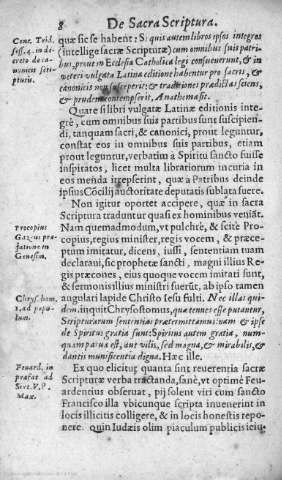 8 De Sacra Scriptura.
Conc. Trid.
sess. 4. in de-
creto de ca-
nonicis scri-
pturis.
quæ sic se habent: S: quis autem libros ipsos integros
(intellige sacræ Scripturæ) cum omnibus suis parti-
bus, prout in Ecclesia Catholica legi consueuerunt, & in
veteri vulgata Latina editione habentur pro sacris, &
canonicis non susceperit: & traditiones prædictas sciens,
& prudens contempserit, Anathema sit.
Quare si libri vulgatæ Latinæ editionis inte-
grè, cum omnibus suis partibus sunt suscipien-
di, tanquam sacri, & canonici, prout leguntur,
constat eos in omnibus suis partibus, etiam
prout leguntur, verbatim à Spiritu sancto fuisse
inspiratos, licet multa librariorum incuria in
eos menda irrepserint, quæ à Patribus deinde
ipsius Cōcilij auctoritate deputatis sublata fuere.
Non igitur oportet accipere, quæ in sacra
Scriptura traduntur quasi ex hominibus veniāt.
Procopius
Gazæus præ-
fatione in
Genesim.
Nam quemadmodum, vt pulchrè, & scitè Pro-
copius, regius minister, regis vocem, & præce-
ptum imitatur, dicens, iussi, sententiam tuam
declaraui, sic prophetæ sancti, magni illius Re-
gis præcones, eius quoque vocem imitati sunt,
& sermonis illius ministri fuerūt, ab ipso tamen
angulari lapide Christo Iesu fulti.
Chrys. hom.
1. ad popu-
lum.
Nec illas qui-
dom, inquit Chrysostomus, quæ tenues esse putantur,
Scripturarum sententias prætermittamus: nam & ipse
de Spiritus gratia sunt: Spiritus autem gratia, num-
quam parua est, aut vilis, sed magna, & mirabilis, &
dantis munificentia digna. Hæc ille.
Feuard. in
præfat. ad
Sixt. V. P.
Max.
Ex quo elicitur quanta sint reuerentia sacræ
Scripturæ verba tractanda, sanè, vt optimè Feu-
ardentius obseruat, pij solent viri cum sancto
Francisco illa vbicunque scripta inuenerint in
locis illicitis colligere, & in locis honestis repo-
nere. quin Iudæis olim piaculum publicis ieiu-